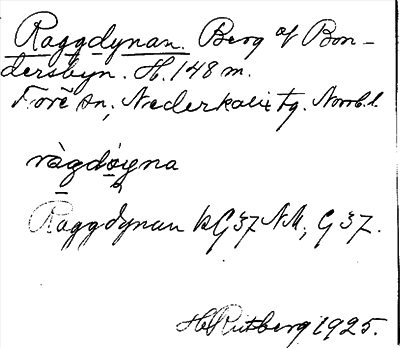 Raggdynan. Berg af Bon-
dersbyn. H. 148 m.
Töre sn, Nederkalix tg. Norrb. l.
ràgdøyna
Raggdynan kG37 NM, G 37.
H. Rutberg 1925.